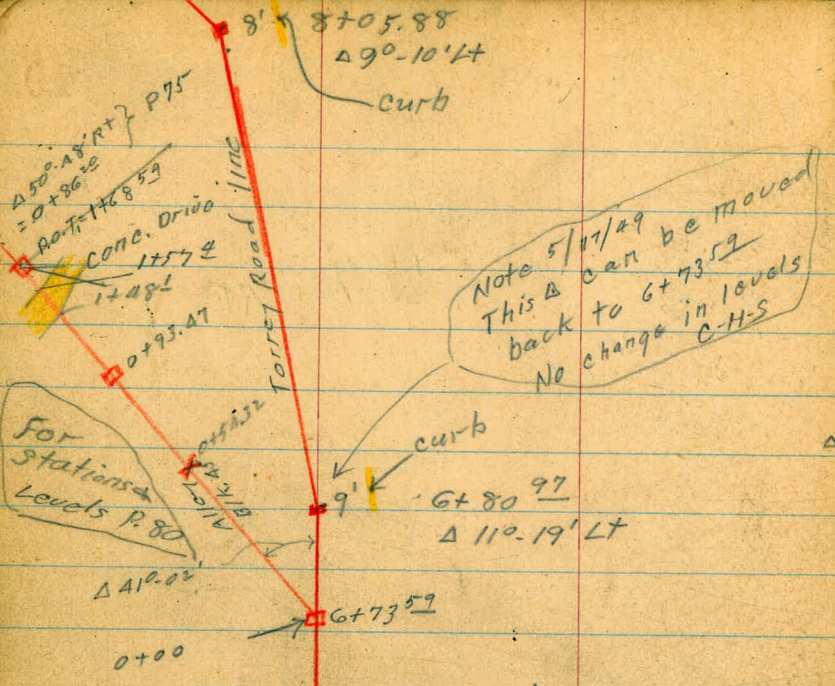 8' 8+05.88
Δ 9°-10' Lt
curb
Δ 50°-48' Rt } P75
= 0+86 20
P.O.T. 1+68 59
Conc. Drive
1+57 4
1+48 1
0+93.47
Torrey Road line
Note 5/17/49
This Δ can be moved
back to 6+73 59
No change in levels
C-H-S
0+54.32
Alley
Blk
For
Stations &
Levels P. 80
curb
9' 6+80 97
Δ 11°-19' Lt
Δ 41°-02'
6+73 59
0+00
Δ